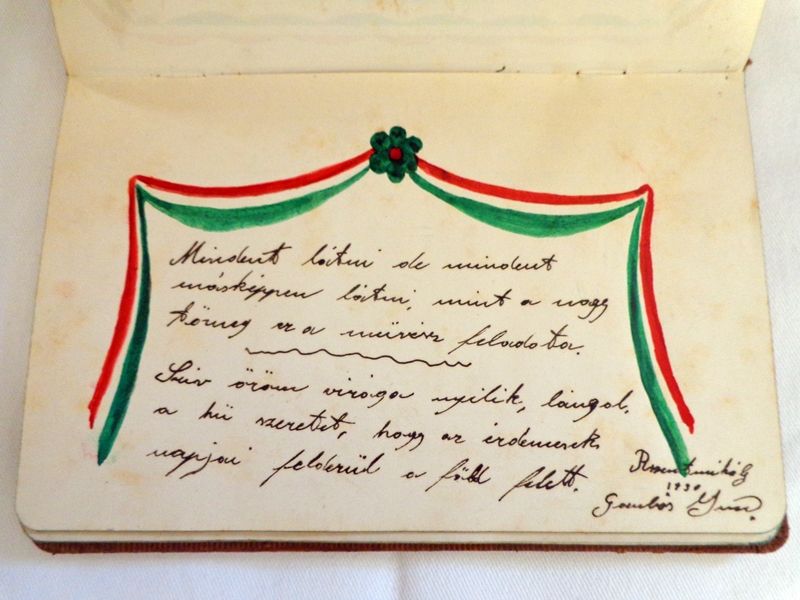 Mindent látni de mindent
másképpen látni, mint a nagy
tömeg ez a művész feladata.
Szív öröm virága nyílik, lángol,
a hű szeretet, hogy az érdemesek
napjai felderül a föld felett.
1930
Gombos